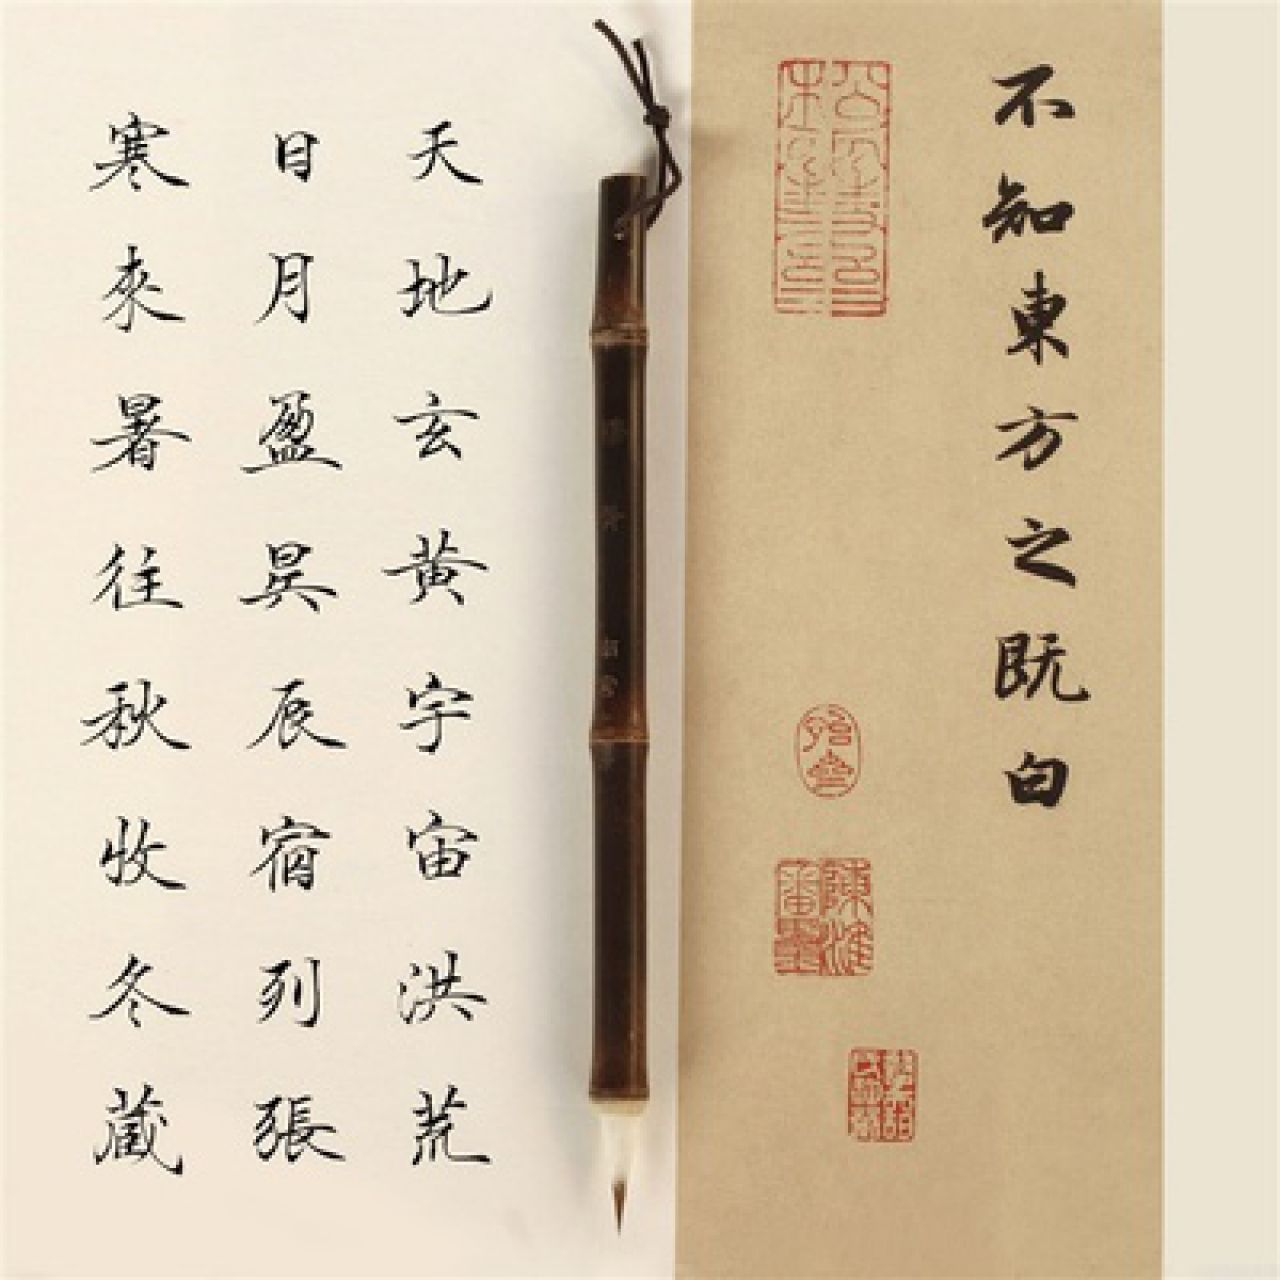 不知東方之既白
天地玄黄宇宙洪荒
日月盈昃辰宿列張
寒來暑往秋收冬藏